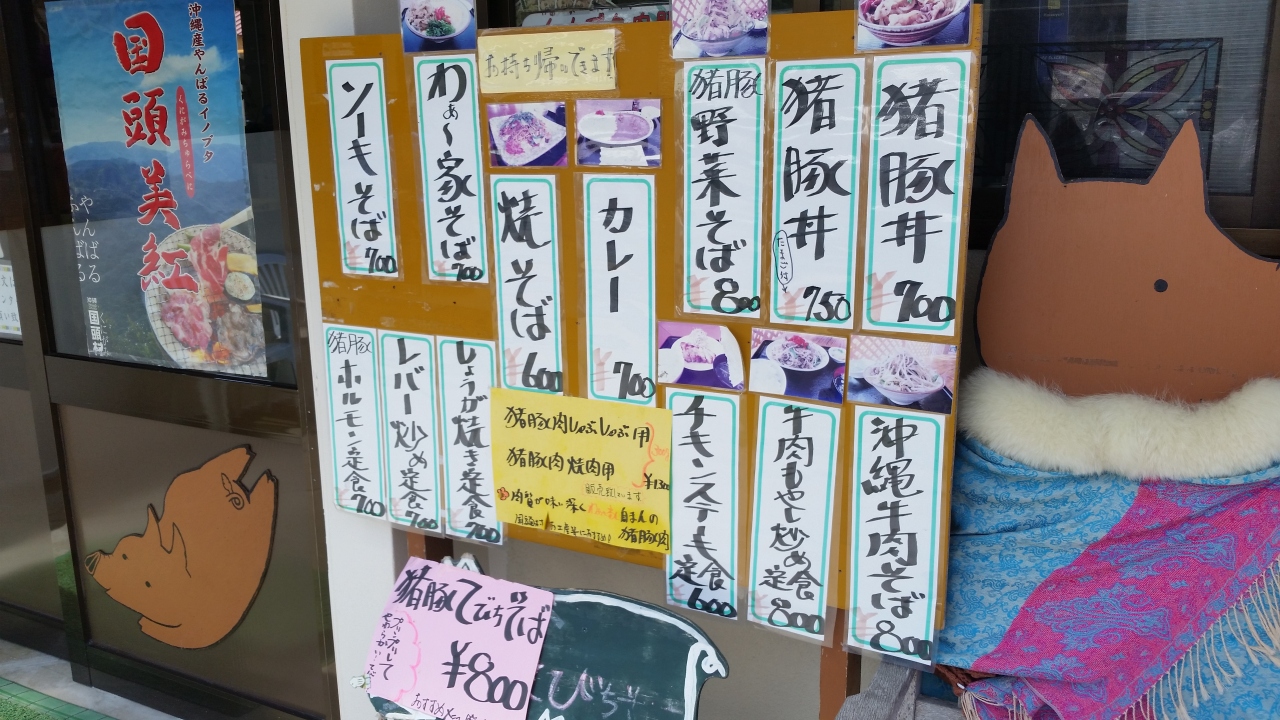 沖縄産やんばるイノブタ
国頭美紅
くにがみちゃんべに
やんばる
国頭村
お持ち帰りできます
ソーキそば 700
わぁ〜家そば 700
焼そば 600
カレー 700
猪豚野菜そば 800
猪豚丼 たまご付 ¥750
猪豚丼 ¥700
猪豚ホルモン定食 700
レバー炒め定食 700
しょうが焼き定食 700
猪豚肉しゃぶしゃぶ用
猪豚肉焼肉用
¥1300
販売しています
自まんの
猪豚肉
チキンステーキ定食 600
牛肉もやし炒め定食 800
沖縄牛肉そば 800
猪豚てびちそば
¥800
プリップリして
おすすめ
びちそ